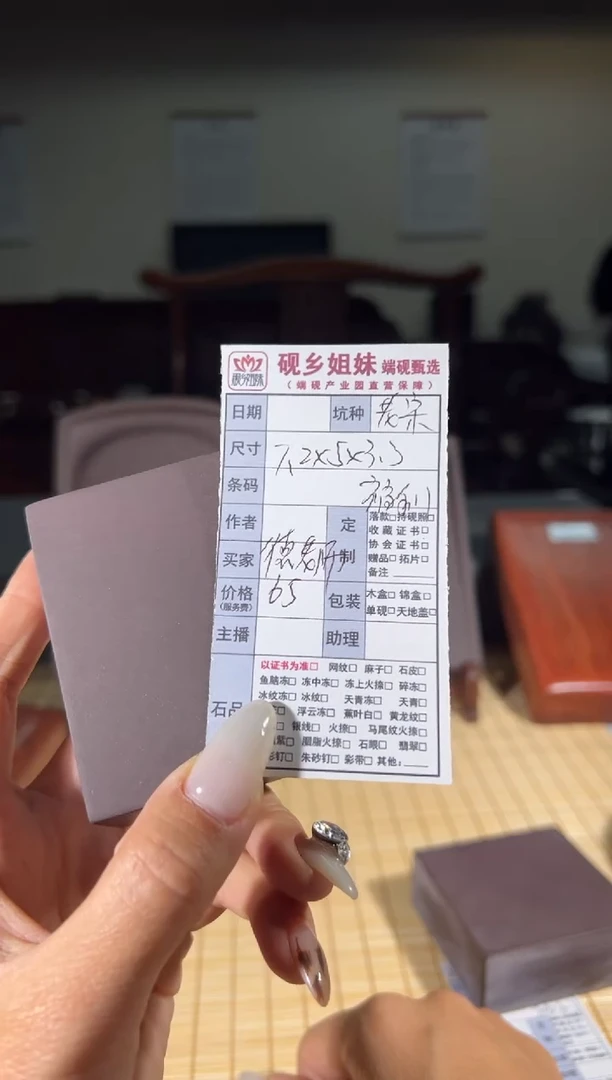 砚乡姐妹 端砚甄选
（端砚产业园直营保障）
日期 坑种
尺寸 7.2x5x3.3
条码
作者 定制
落款□ 持砚照□
收藏证书□
协会证书□
赠品□ 拓片□
备注
买家
价格 65
（服务费）
包装
木盒□ 锦盒□
单砚□ 天地盖□
主播 助理
石品
以证书为准□ 网纹□ 麻子□ 石皮□
鱼脑冻□ 冻中冻□ 冻上火捺□ 碎冻□
冰纹冻□ 冰纹□ 天青冻□ 天青□
浮云冻□ 蕉叶白□ 黄龙纹□
银线□ 火捺□ 马尾纹火捺□
胭脂火捺□ 石眼□ 翡翠□
朱砂钉□ 彩带□ 其他：